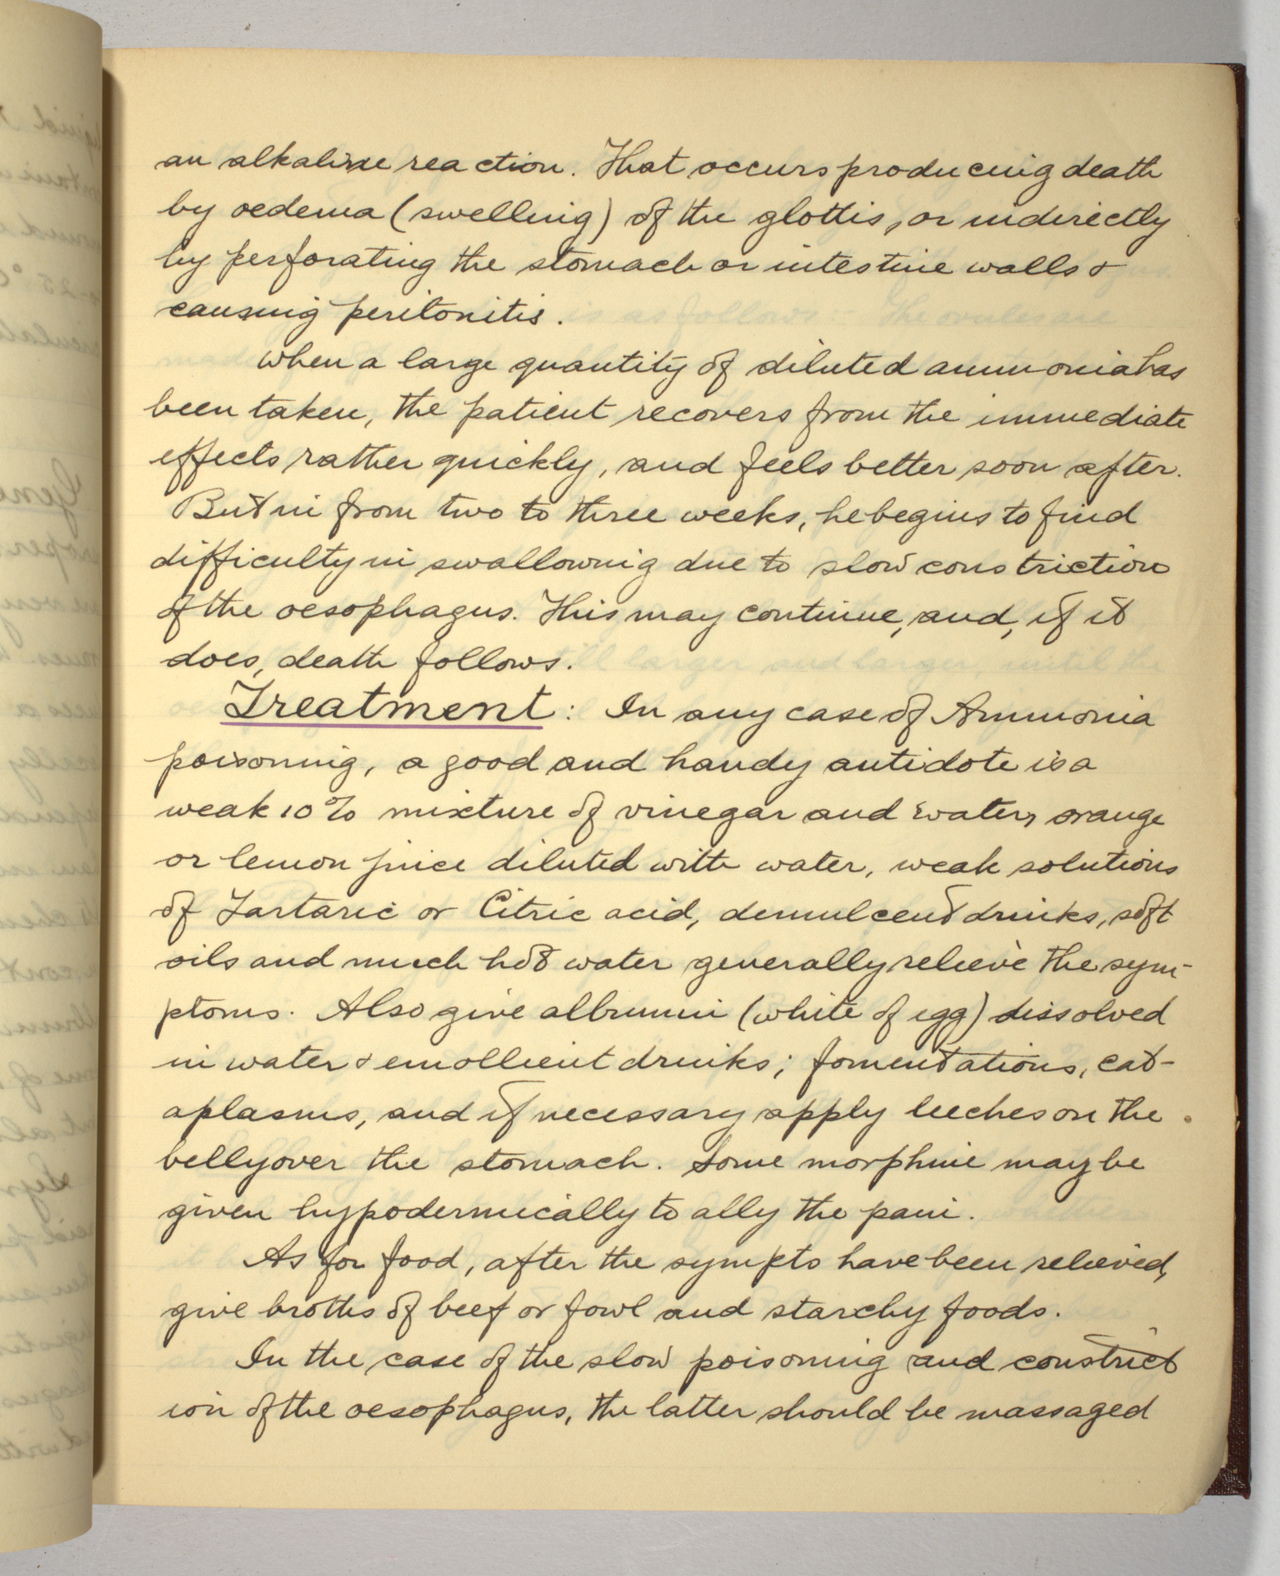 an alkaline reaction. That occurs producing death
by oedema (swelling) of the glottis, or indirectly
by perforating the stomach or intestine walls &
causing peritonitis.
When a large quantity of diluted ammonia has
been taken, the patient recovers from the immediate
effects rather quickly, and feels better soon after.
But in from two to three weeks, he begins to find
difficulty in swallowing due to slow constriction
of the oesophagus. This may continue, and, if it
does, death follows.
Treatment: In any case of Ammonia
poisoning, a good and handy antidote is a
weak 10% mixture of vinegar and water, orange
or lemon juice diluted with water, weak solutions
of Tartaric or Citric acid, demulcent drinks, soft
oils and much hot water generally relieve the sym-
ptoms. Also give albumin (white of egg) dissolved
in water & emollient drinks; fomentations, cat-
aplasms, and if necessary apply leeches on the
belly over the stomach. Some morphine may be
given hypodermically to ally the pain.
As for food, after the sympts have been relieved,
give broths of beef or fowl and starchy foods.
In the case of the slow poisoning and constrict
ion of the oesophagus, the latter should be massaged